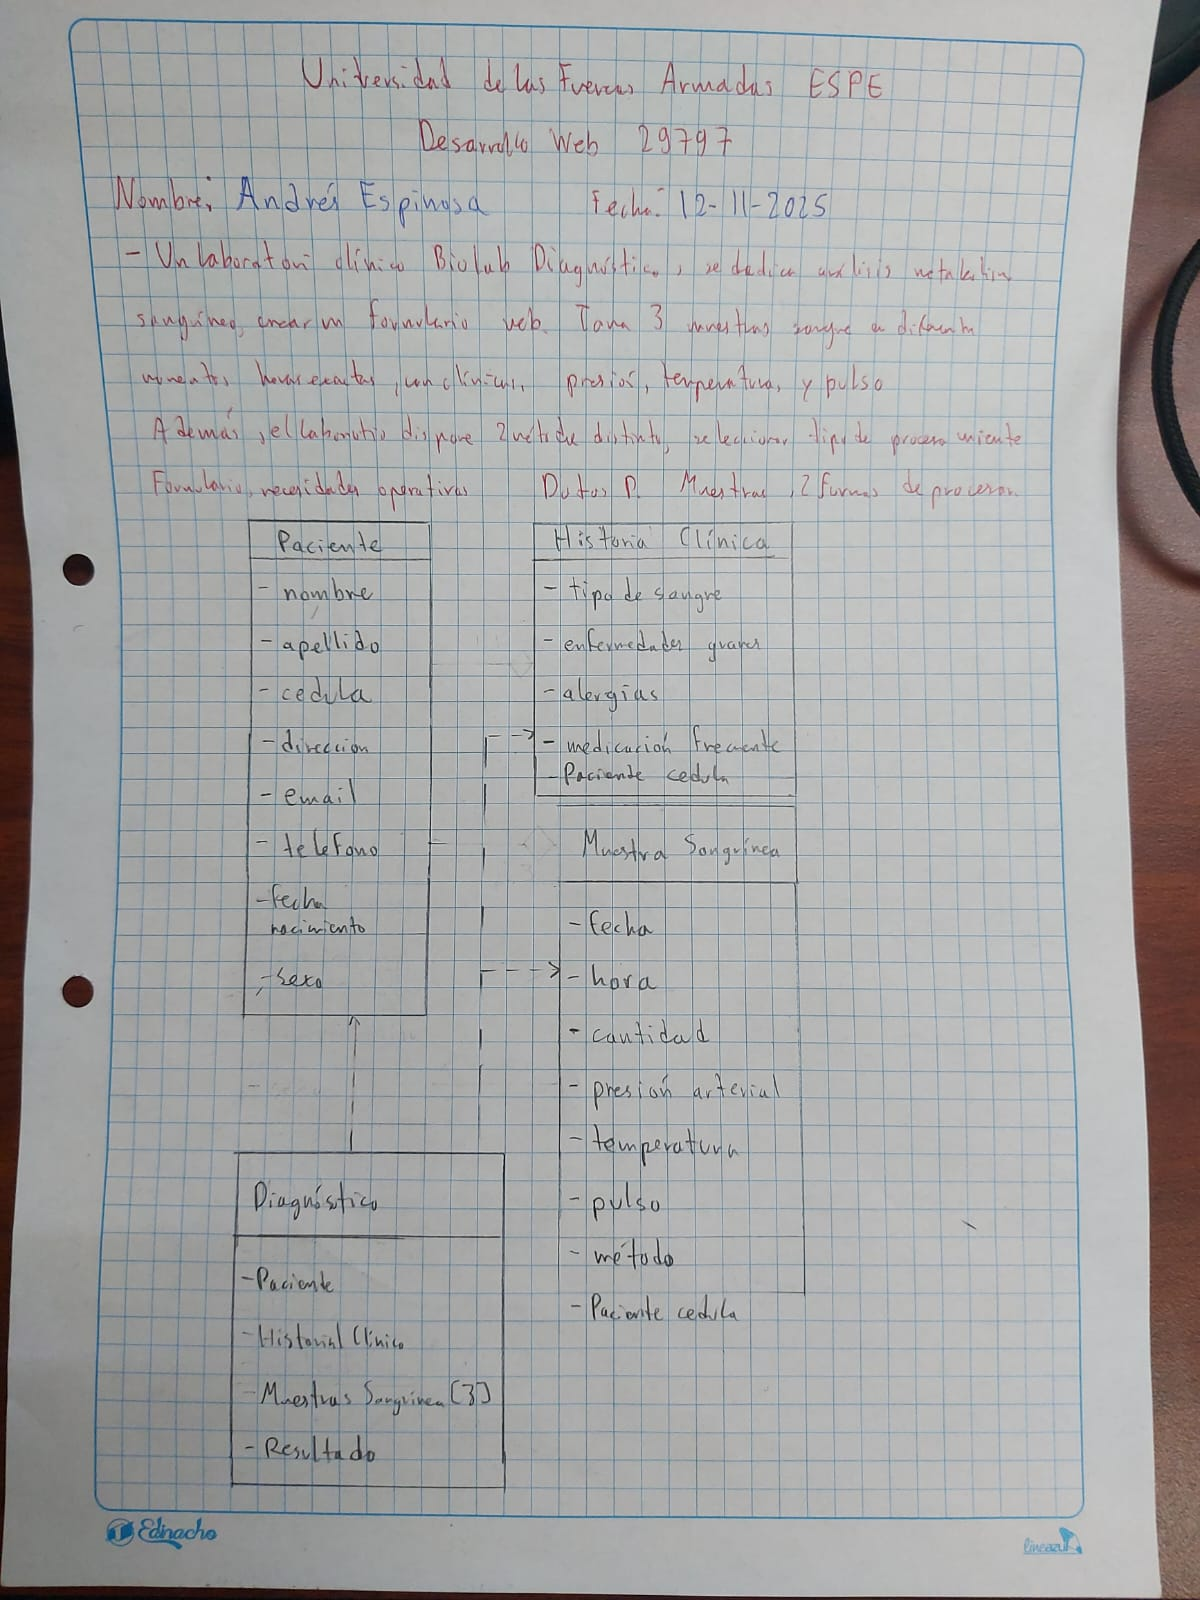 Universidad de las Fuerzas Armadas ESPE
Desarrollo Web 29797
Nombre: Andrés Espinosa Fecha: 12-11-2025
- Un laboratori clínico Biolab Diagnóstico, se dedica análisis metabolism
sanguíneo, crear un formulario web. Toma 3 muestras sangre en diferente
momentos, horas exactas, con clínicas, presión, temperatura, y pulso
Además, el laboratorio dispone 2 métodos distintos, seleccionar tipo de proceso
Formulario, necesidades operativas Datos P. Muestras, 2 formas de procesar.
Paciente
- nombre
- apellido
- cedula
- dirección
- email
- telefono
- fecha
nacimiento
- sexo
Historia Clínica
- tipo de sangre
- enfermedades graves
- alergias
- medicación frecuente
- Paciente cedula
Muestra Sanguínea
- fecha
- hora
- cantidad
- presión arterial
- temperatura
- pulso
- método
- Paciente cedula
Diagnóstico
- Paciente
- Historial Clínico
- Muestras Sanguínea [3]
- Resultado
Edinacho
lineazul